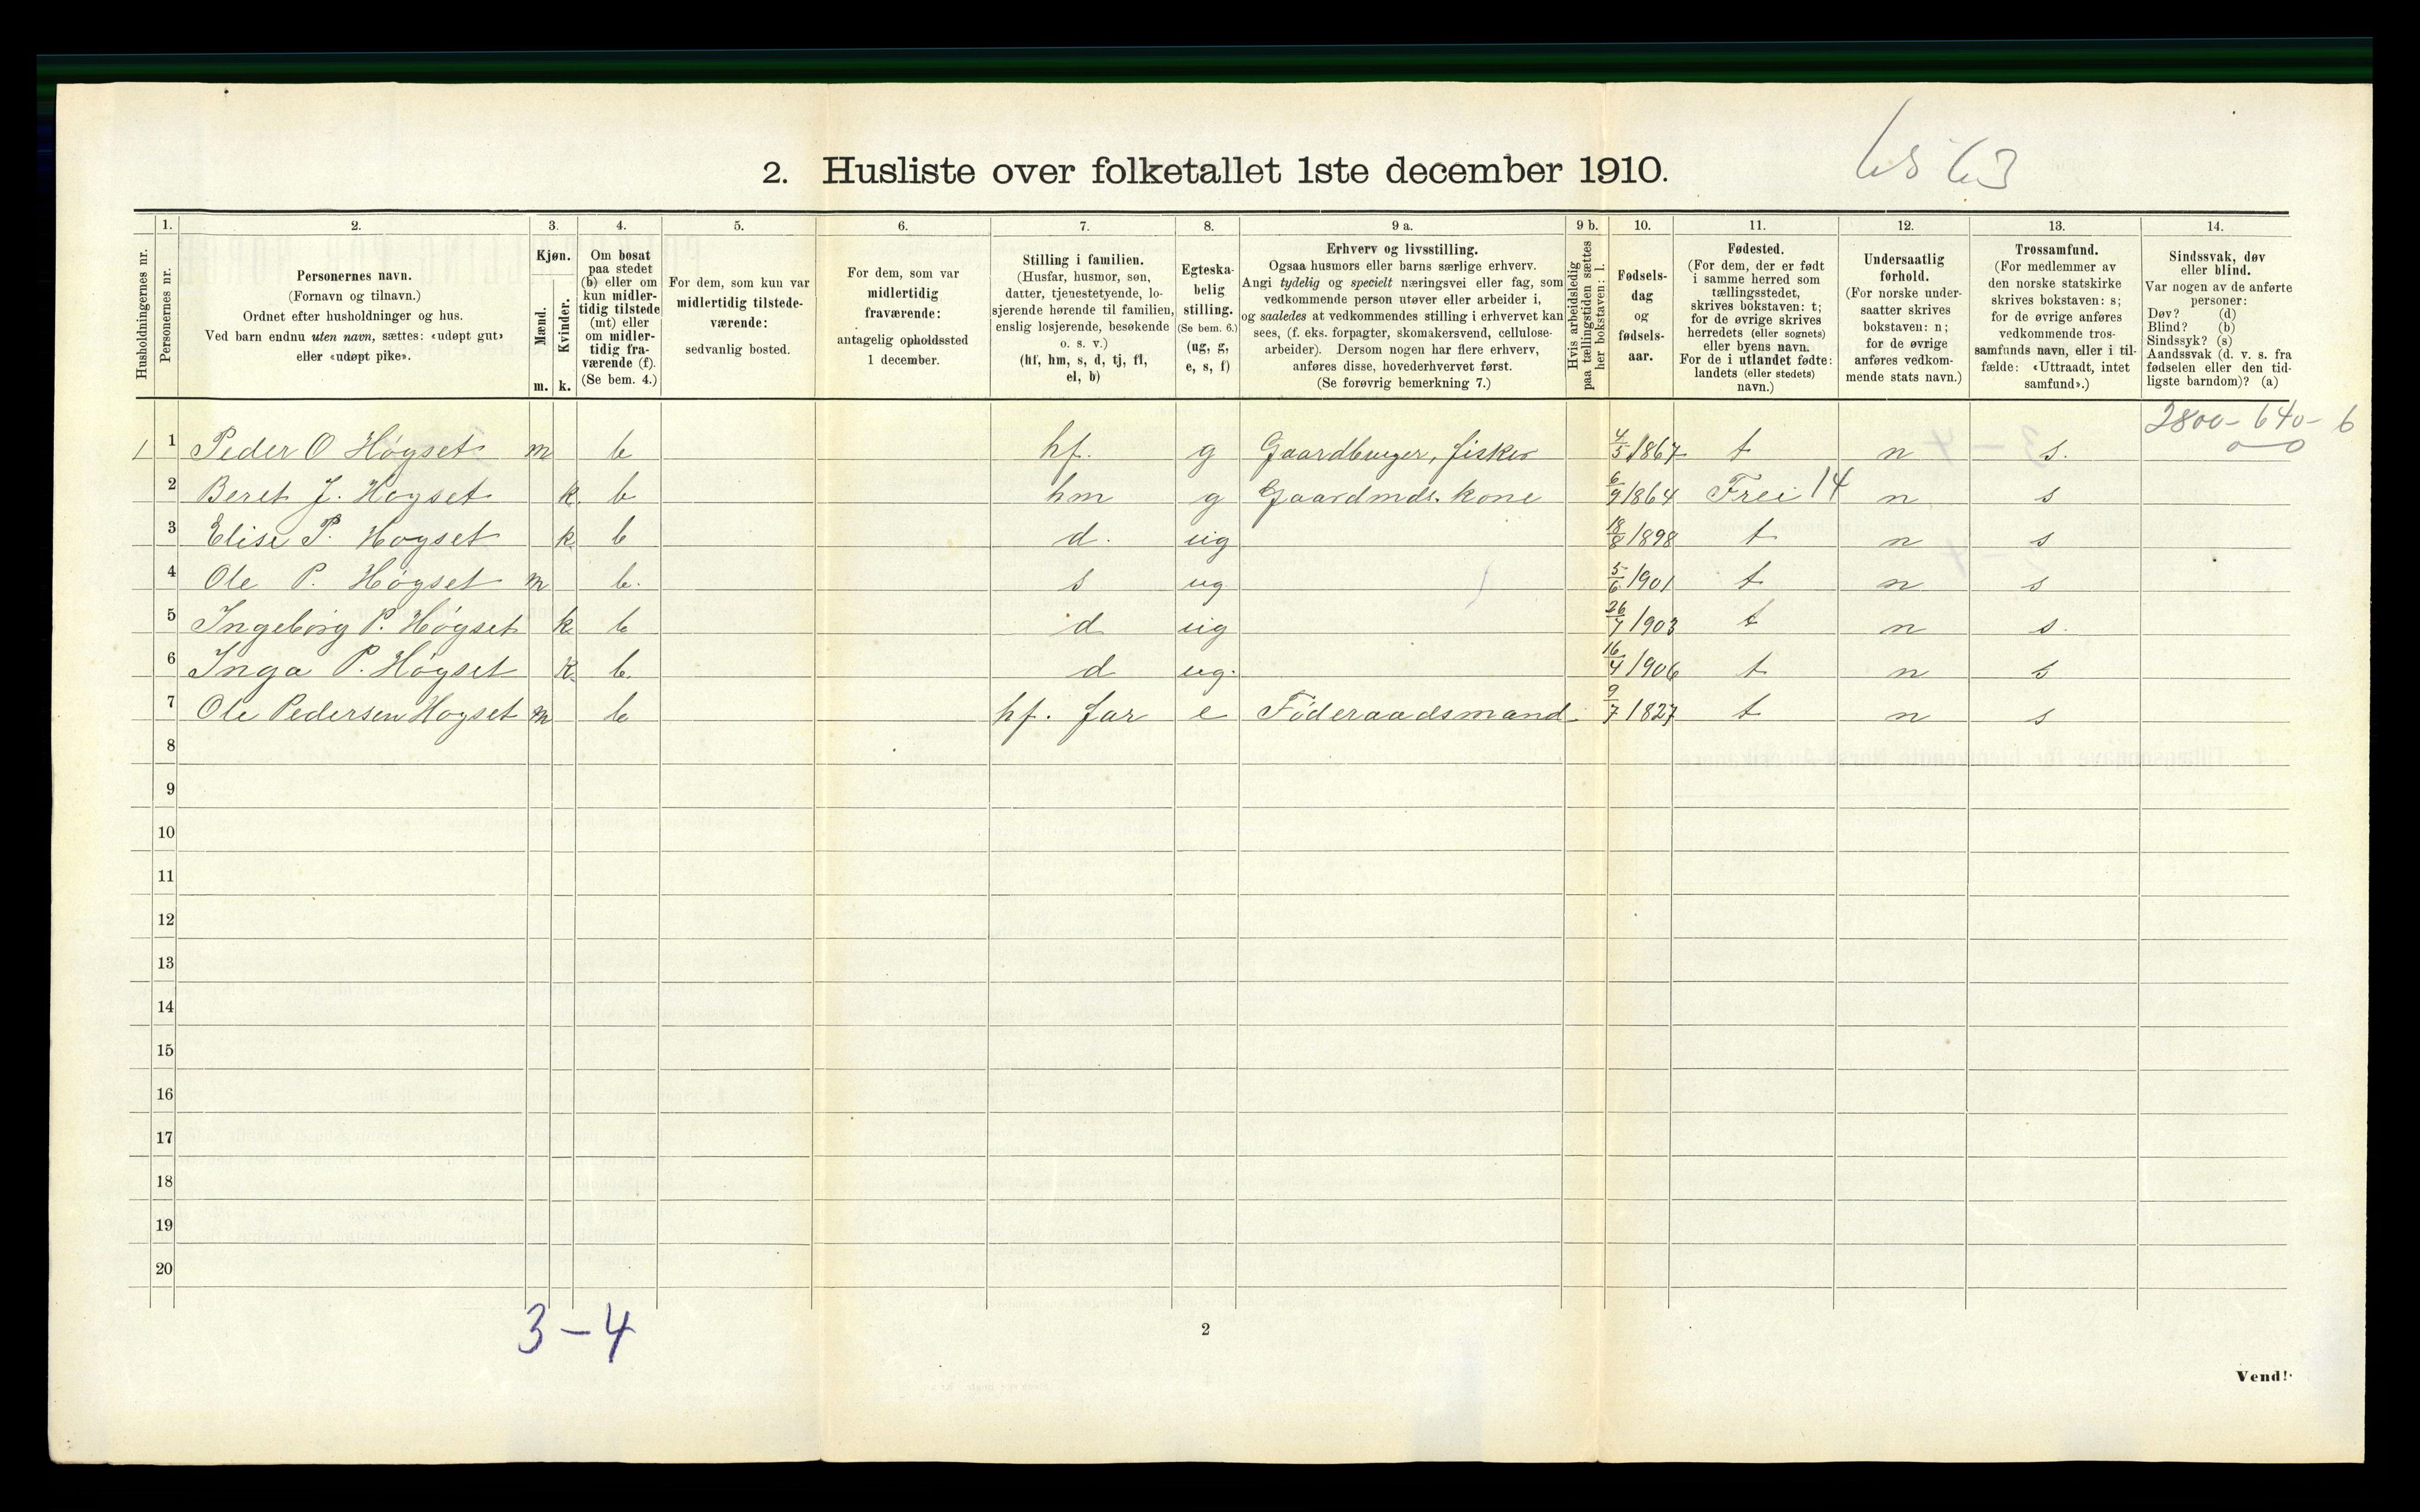 2. Husliste over folketallet 1ste december 1910.
Husholdningernes nr.
1.
Personernes nr.
2.
Personernes navn.
(Fornavn og tilnavn.)
Ordnet efter husholdninger og hus.
Ved barn endnu uten navn, sættes: «udøpt gut»
eller «udøpt pike».
3.
Kjøn.
Mænd.
Kvinder.
m. k.
4.
Om bosat
paa stedet
(b) eller om
kun midler-
tidig tilstede
(mt) eller
om midler-
tidig fra-
værende (f).
(Se bem. 4.)
5.
For dem, som kun var
midlertidig tilstede-
værende:
sedvanlig bosted.
6.
For dem, som var
midlertidig
fraværende:
antagelig opholdssted
1 december.
7.
Stilling i familien.
(Husfar, husmor, søn,
datter, tjenestetyende, lo-
sjerende hørende til familien,
enslig losjerende, besøkende
o. s. v.)
(hf, hm, s, d, tj, fl,
el, b)
8.
Egteska-
belig
stilling.
(Se bem. 6.)
(ug, g,
e, s, f)
9 a.
Erhverv og livsstilling.
Ogsaa husmors eller barns særlige erhverv.
Angi tydelig og specielt næringsvei eller fag, som
vedkommende person utøver eller arbeider i,
og saaledes at vedkommendes stilling i erhvervet kan
sees, (f. eks. forpagter, skomakersvend, cellulose-
arbeider). Dersom nogen har flere erhverv,
anføres disse, hovederhvervet først.
(Se forøvrig bemerkning 7.)
9 b.
Hvis arbeidsledig
paa tællingstiden sættes
her bokstaven: l.
10.
Fødsels-
dag
og
fødsels-
aar.
11.
Fødested.
(For dem, der er født
i samme herred som
tællingsstedet,
skrives bokstaven: t;
for de øvrige skrives
herredets (eller sognets)
eller byens navn.
For de i utlandet fødte:
landets (eller stedets)
navn.)
12.
Undersaatlig
forhold.
(For norske under-
saatter skrives
bokstaven: n;
for de øvrige
anføres vedkom-
mende stats navn.)
13.
Trossamfund.
(For medlemmer av
den norske statskirke
skrives bokstaven: s;
for de øvrige anføres
vedkommende tros-
samfunds navn, eller i til-
fælde: «Uttraadt, intet
samfund».)
14.
Sindssvak, døv
eller blind.
Var nogen av de anførte
personer:
Døv? (d)
Blind? (b)
Sindssyk? (s)
Aandssvak (d. v. s. fra
fødselen eller den tid-
ligste barndom)? (a)
2800-640-6
0-0
1 1 Peder O Høgset m b hf. g Gaardbruger, fisker 4/5 1867 t n s.
2 Beret J. Høgset k. b hm g Gaardmds. kone 6/9 1864 Frei 14 n s
3 Elise P. Høgset k b d. ug 18/8 1898 t n s
4 Ole P. Høgset m b. s ug 5/6 1901 t n s
5 Ingeborg P. Høgset k b d ug 26/7 1903 t n s.
6 Inga P. Høgset k b. d ug. 16/4 1906 t n s
7 Ole Pedersen Høgset m b hf. far e Føderaadsmand 9/7 1827 t n s
8
9
10
11
12
13
14
15
16
17
18
19
20
3-4
2
Vend!